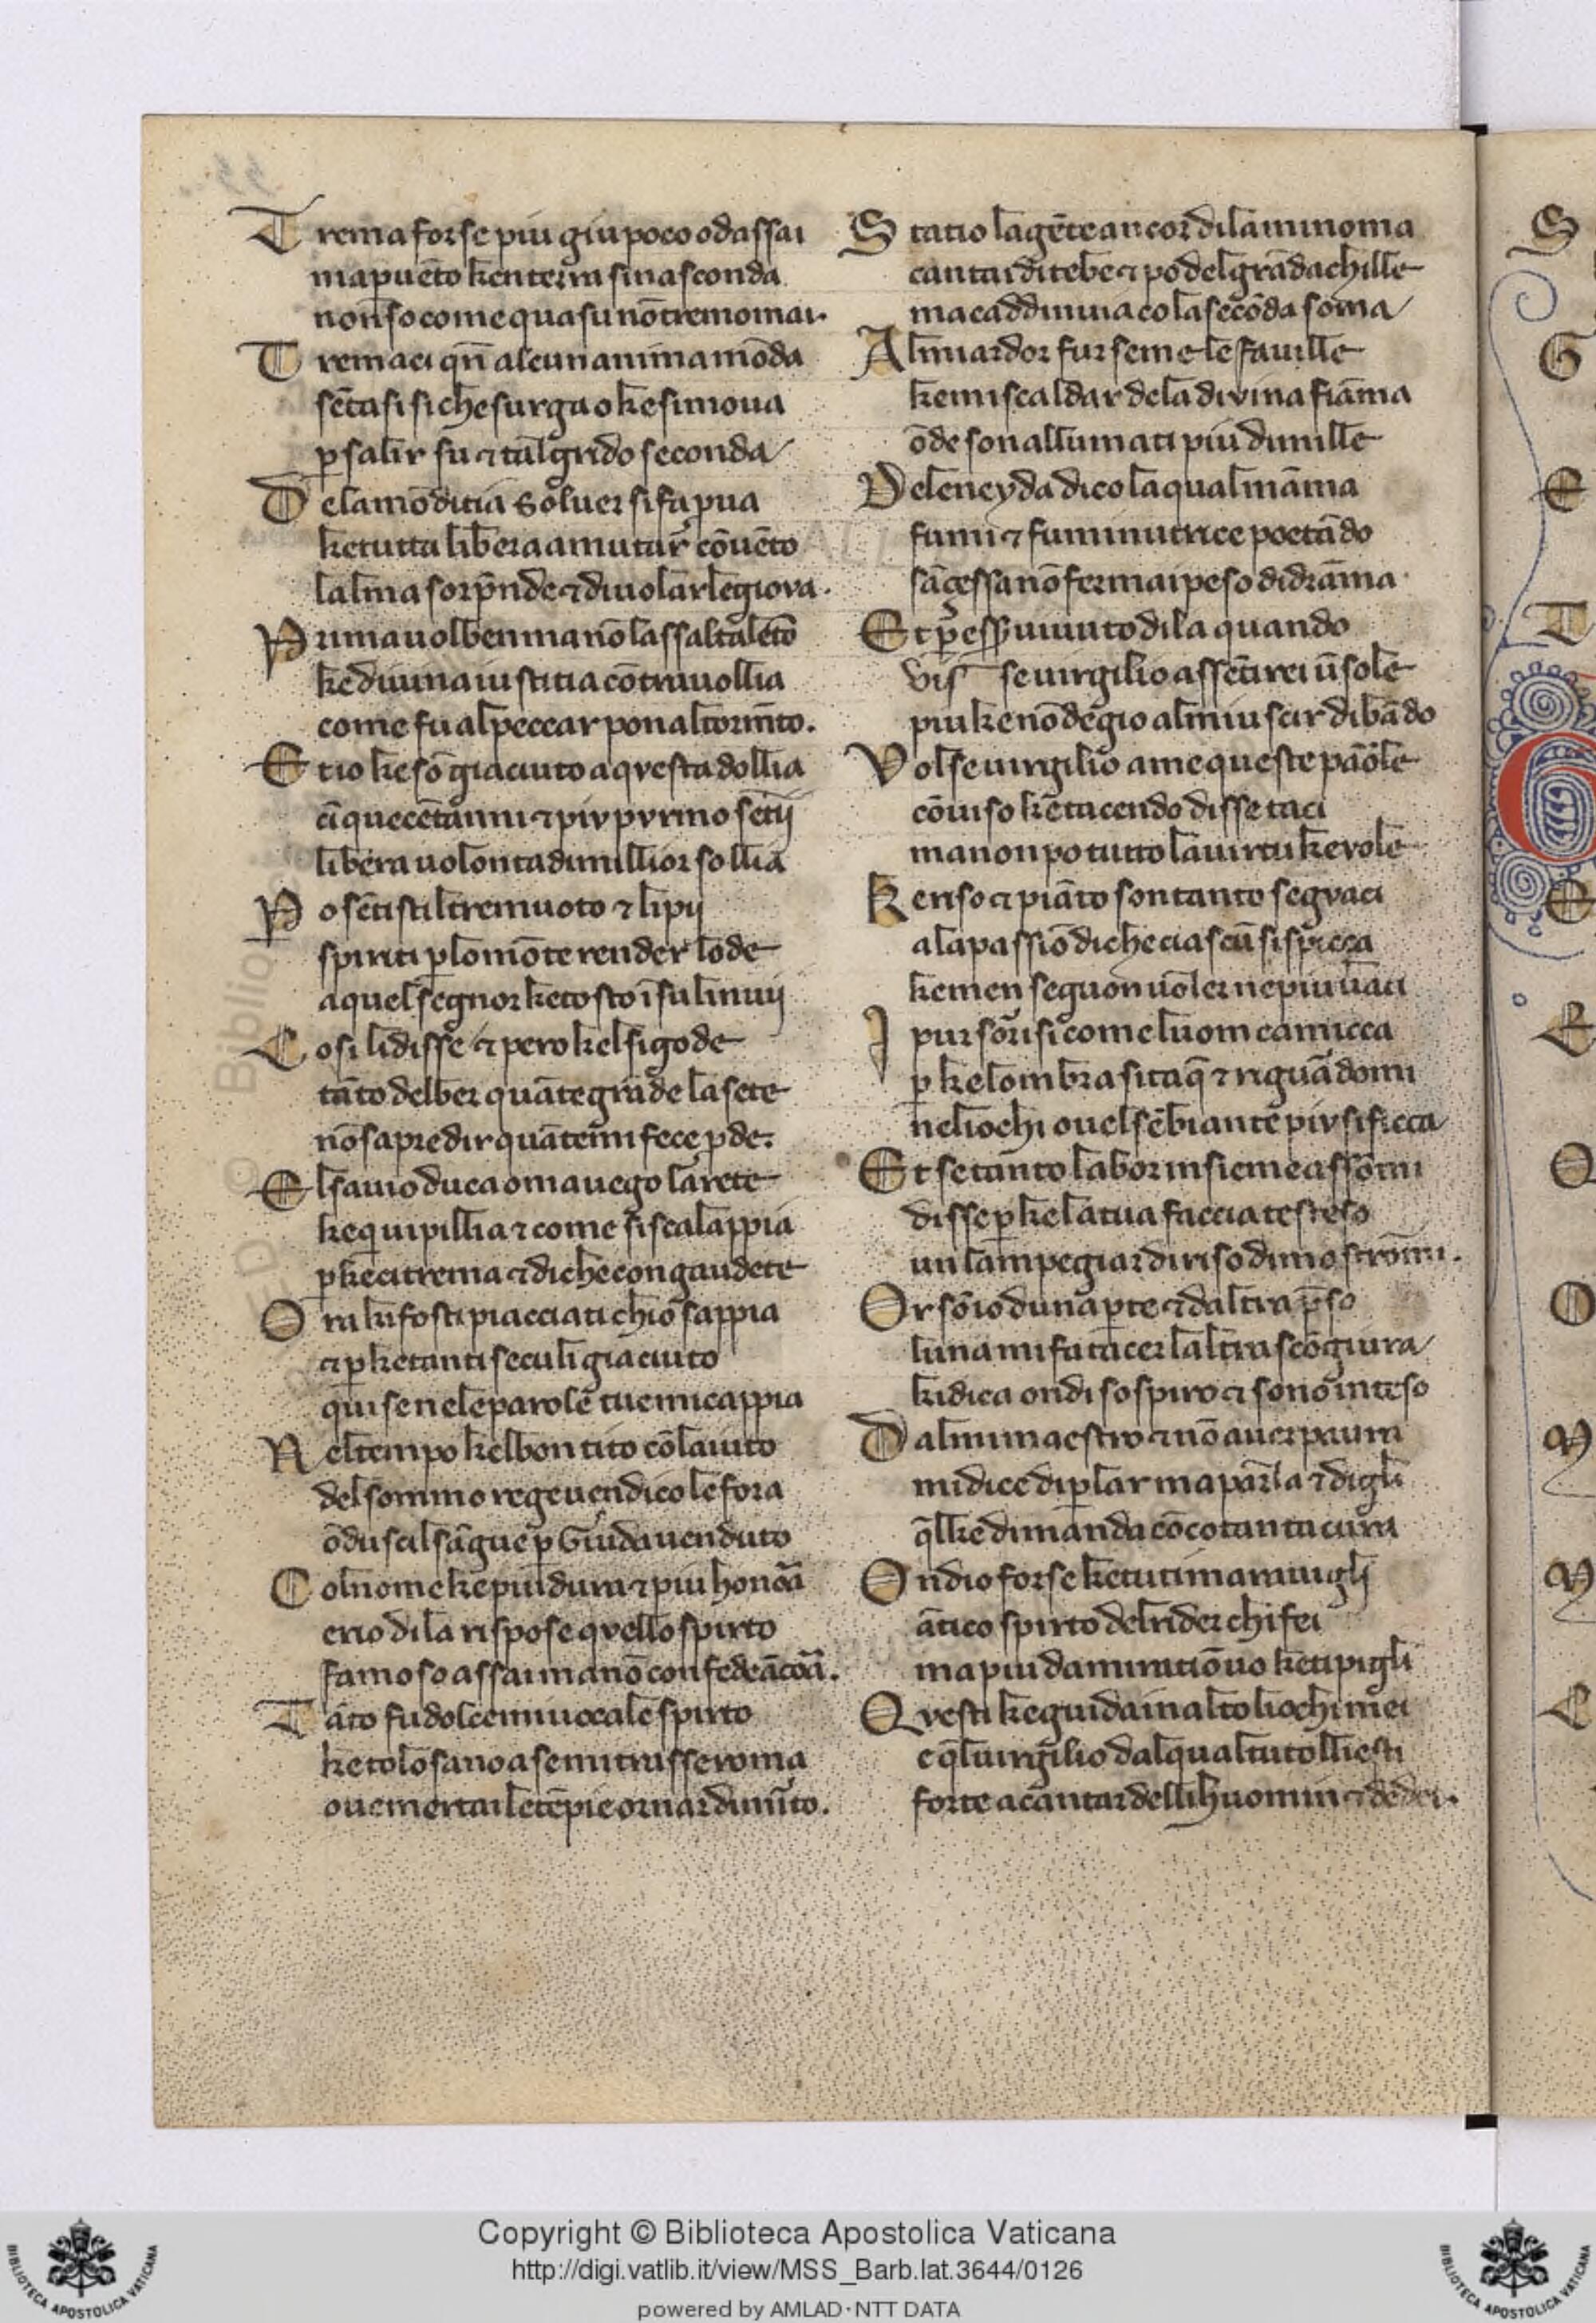 Trema forse piu giu poco od assai
ma p uēto kenterra si nasconda
non so come qua su nō tremo mai.
Tremaci qn̄ alcun anima mōda
sētasi si che surga o ke si mova
p salir su ⁊ tal grido seconda
Dela mōditia soluer si fa pua
ke tutta libera a mutar cōuēto
lalma sorpn̄de ⁊ di uolar le giova.
Prima uol ben ma nō lassal talēto
ke diuina iustitia cōtra uollia
come fu al peccar pon al tormīto.
Et io ke sō giaciuto a qvesta dollia
cīquecētanni ⁊ piv pvr mo sētij
libera uolonta di millior sollia
Po sētisti l tremuoto ⁊ li pij
spiriti p lo mōte render lode
a quel segnor ke tosto ī su li nuij
Cosi li disse ⁊ pero kel si gode
tāto del ber quāte grāde la sete
nō sapre dir quātemi fece pde.
El savio duca oma uego la rete
ke qui pillia ⁊ come si scalappia
p ke ci trema ⁊ di che congaudete
Ora ki fosti piacciati chio sappia
⁊ p ke tanti seculi giaciuto
qui se ne le parole tue mi cappia
Nel tempo kel bon tito cō laiuto
del sommo rege uendico le fora
ōdusci l sāgue p Giuda uenduto
Col nome ke piu dura ⁊ piu honoā
erio di la rispose qvello spirto
famoso assai ma nō con fede ācoā.
Tāto fu dolce mi uocale spirto
ke tolosano a se mi trasse roma
oue mertai le tēpie ornar di mīto.
Statio la gēte ancor di la mi noma
cantai di tebe ⁊ po del grād achille
ma caddi in uia co la secōda soma
Al mi ardor fur seme le fauille
ke mi scaldar dela divina fiāma
ōde son allumati piu di mille
Deleneyda dico la qual māma
fumi ⁊ fummi nutrice poetādo
sācessa nō fermai peso di drāma
Et p ess uiuuto di la quando
vis se uirgilio assētirei ū sole
piu ke nō degio al miu scir di bādo
Volse uirgilio a me queste paōle
cō uiso kē tacendo disse taci
ma non po tutto la uirtu ke vole
Ke riso ⁊ piāto son tanto segvaci
a la passiō di che ciascū si spicca
ke men seguon uoler ne piu uaci
I pur sorrisi come luom camicca
p ke lombra si taq̄ ⁊ riguādomi
nel iochi ouel sēbiante piv si ficca
Et se tanto labor insieme assōmi
disse p ke la tua faccia testeso
un lampegiar di riso dimostrōmi.
Or sō io duna pte ⁊ dal tra p̄so
luna mi fa tacer laltra scōgiura
ki dica ondi sospiro ⁊ sono inteso
Dal mi maestro ⁊ nō auer paura
mi dice di plar ma parla ⁊ digli
q̄l ke dimanda cō cotanta cura
Ondio forse ke tu ti marauigli
ātico spirto del rider chi fei
ma piu damiratiō uo ke ti pigli
Qvesti ke guida in alto li ochi mei
e q̄l uirgilio dal qual tu tolliesti
forte a cantar delli huomini ⁊ de dei.
Copyright © Biblioteca Apostolica Vaticana
http://digi.vatlib.it/view/MSS_Barb.lat.3644/0126
powered by AMLAD·NTT DATA
BIBLIOTECA APOSTOLICA VATICANA
BIBLIOTECA APOSTOLICA VATICANA